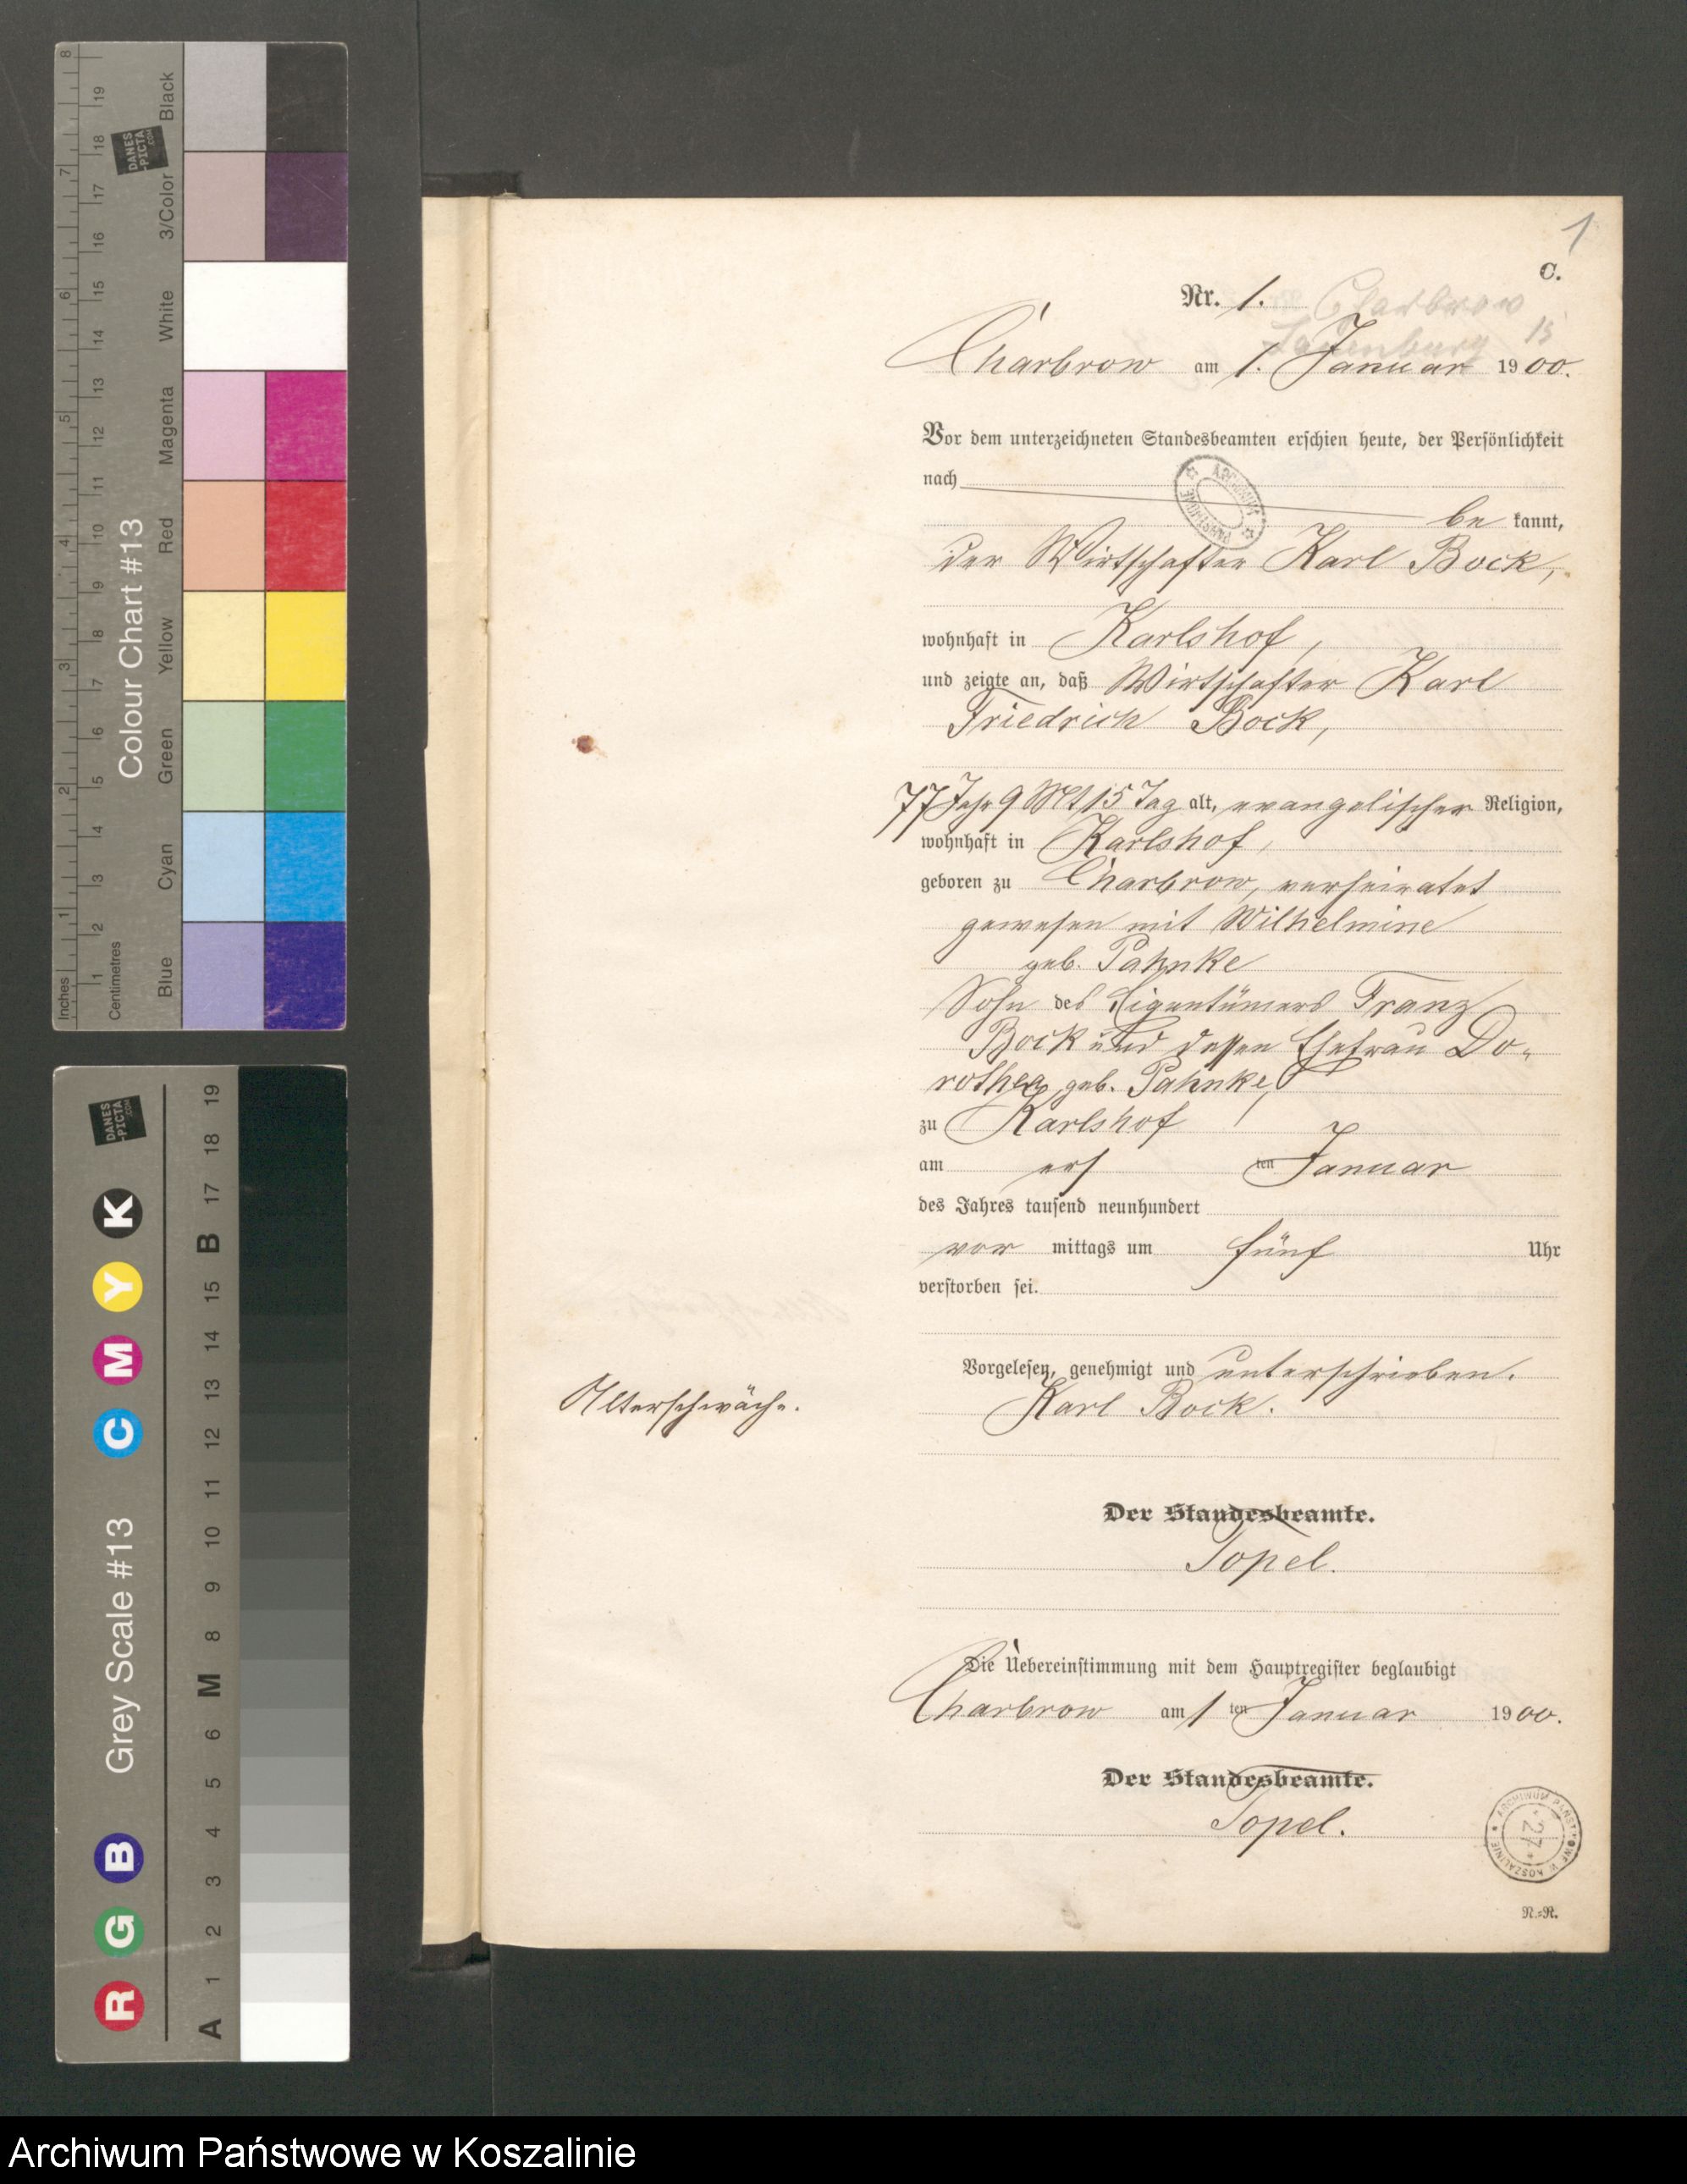 1
C.
Nr. 1.
Charbrow
Lauenburg
Charbrow am 1. Januar 1900.
Vor dem unterzeichneten Standesbeamten erschien heute, der Persönlichkeit
nach
be kannt,
der Wirtschafter Karl Bock,
wohnhaft in Karlshof,
und zeigte an, daß Wirtschafter Karl
Friedrich Bock,
77 Jahr 9 Mt 15 Tag alt, evangelischer Religion,
wohnhaft in Karlshof,
geboren zu Charbrow, verheiratet
gewesen mit Wilhelmine
geb. Pahnke
Sohn des Eigentümers Franz
Bock und dessen Ehefrau Do-
rothea geb. Pahnke,
zu Karlshof
am ers ten Januar
des Jahres tausend neunhundert
vor mittags um fünf Uhr
verstorben sei.
Vorgelesen, genehmigt und unterschrieben.
Karl Bock.
Alterschwäche.
Der Standesbeamte.
Topel.
Die Uebereinstimmung mit dem Hauptregister beglaubigt
Charbrow am 1 ten Januar 1900.
Der Standesbeamte.
Topel.
ARCHIWUM PAŃSTWOWE W KOSZALINIE
27
R.-R.
Colour Chart #13
Blue Cyan Green Yellow Red Magenta White 3/Color Black
Inches 1 2 3 4 5 6 7 8
Centimetres 1 2 3 4 5 6 7 8 9 10 11 12 13 14 15 16 17 18 19
DANES
-PICTA
.COM
Grey Scale #13
R G B C M Y K
A 1 2 3 4 5 6 M 8 9 10 11 12 13 14 15 B 17 18 19
DANES
-PICTA
.COM
Archiwum Państwowe w Koszalinie